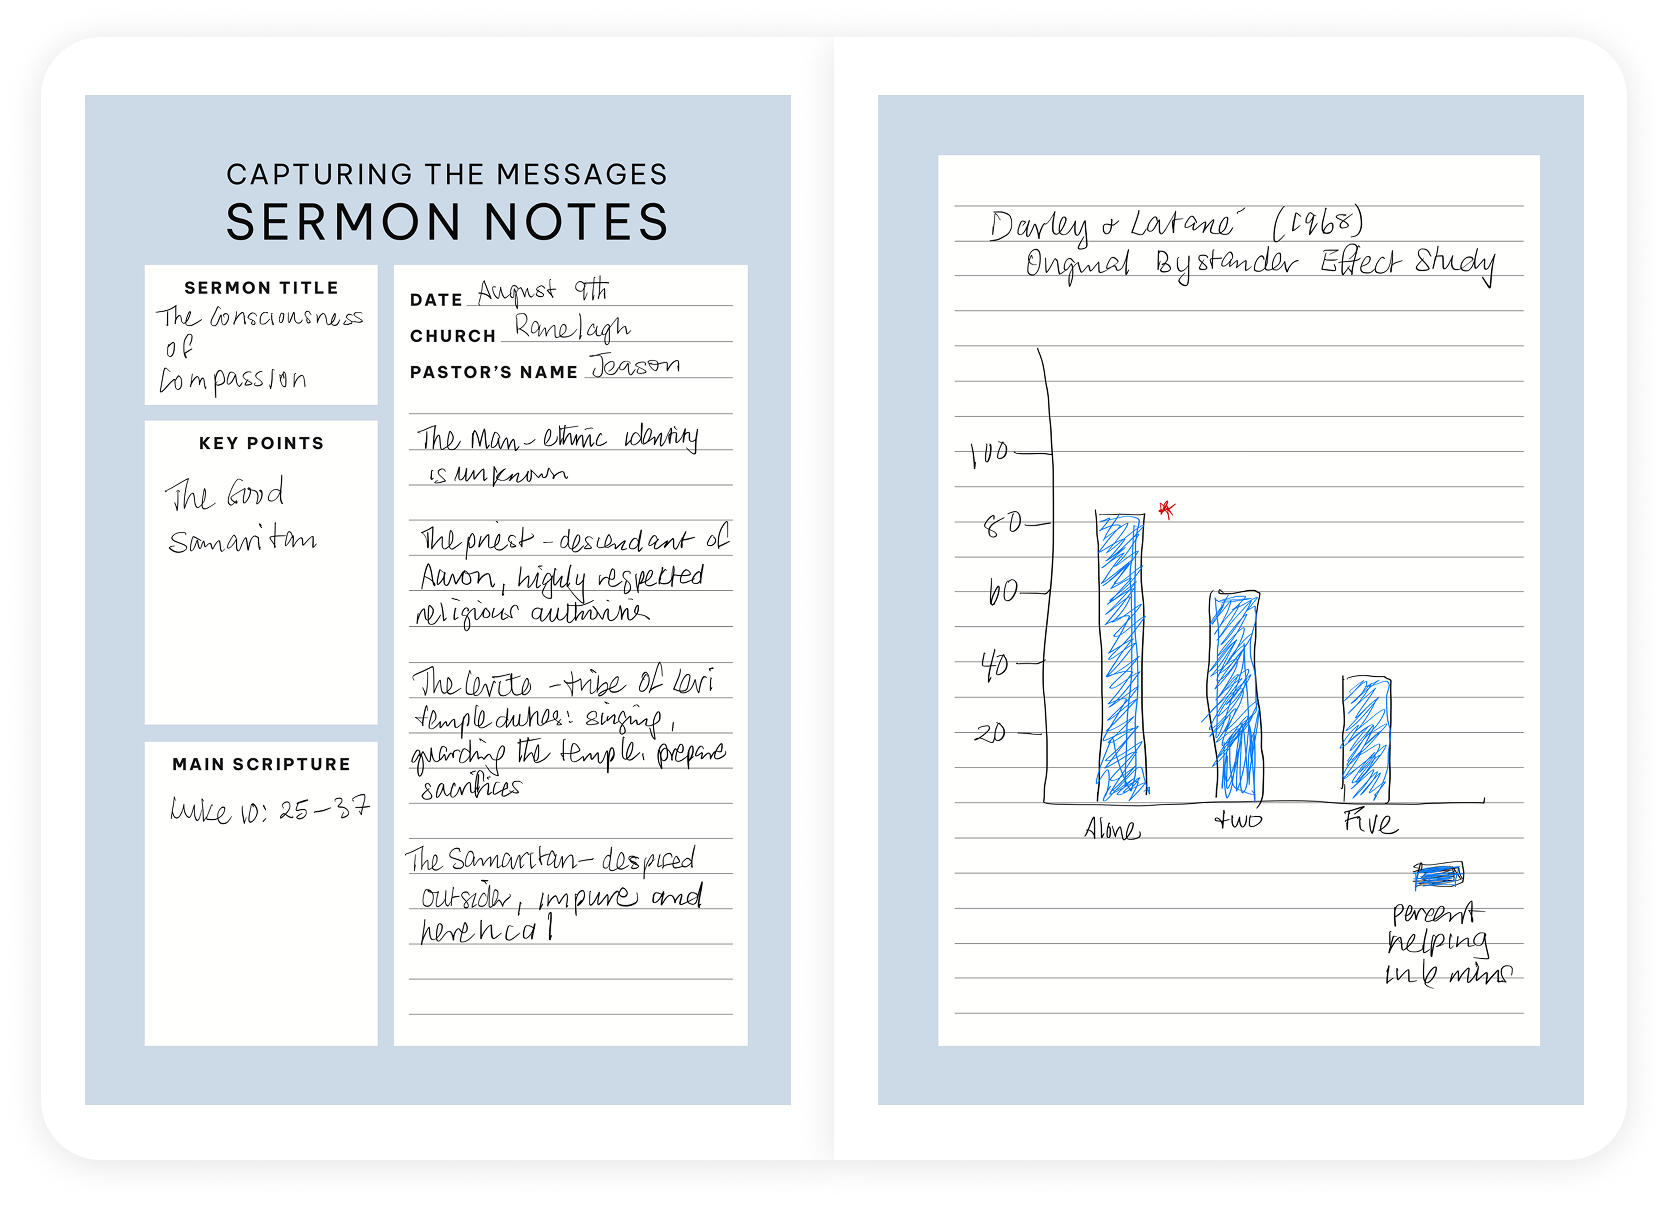 CAPTURING THE MESSAGES
SERMON NOTES
SERMON TITLE
The Consciousness
of
Compassion
KEY POINTS
The Good
Samaritan
MAIN SCRIPTURE
Luke 10: 25-37
DATE August 9th
CHURCH Ranelagh
PASTOR'S NAME Jeason
The Man - ethnic identity
is unknown
The priest - descendant of
Aaron, highly respected
religious authorities
The Levite - tribe of Levi
temple duties: singing,
guarding the temple, prepare
sacrifices
The Samaritan - despised
outsider, impure and
heretical
Darley & Latané (1968)
Original Bystander Effect Study
100
80
60
40
20
Alone two Five
percent
helping
in 6 mins